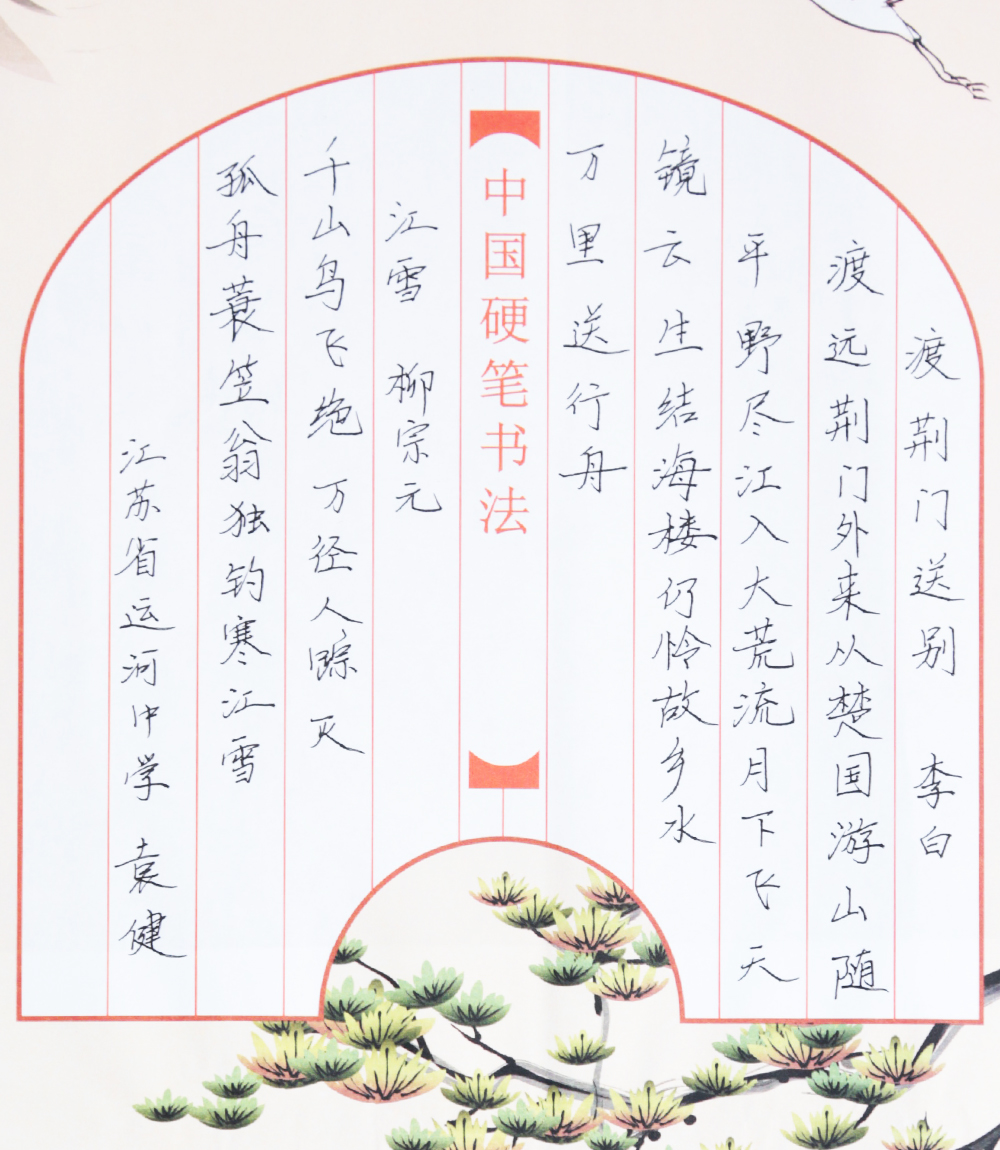 渡荆门送别 李白
渡远荆门外来从楚国游山随
平野尽江入大荒流月下飞天
镜云生结海楼仍怜故乡水
万里送行舟
中国硬笔书法
江雪 柳宗元
千山鸟飞绝万径人踪灭
孤舟蓑笠翁独钓寒江雪
江苏省运河中学 袁健